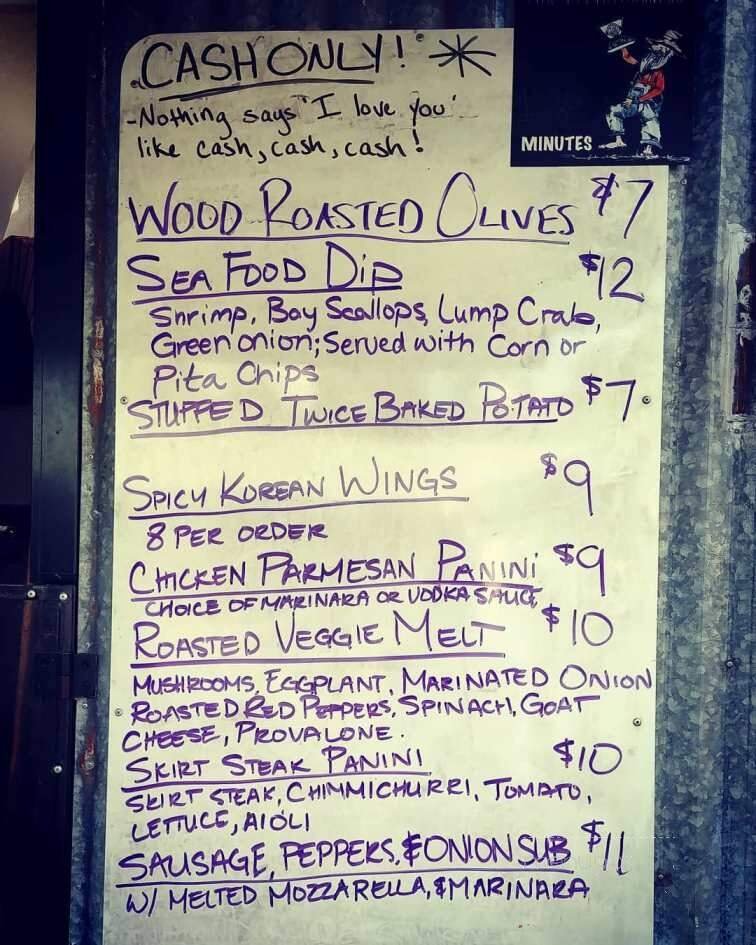 CASH ONLY! *
-Nothing says 'I love you'
like cash, cash, cash!
MINUTES
WOOD ROASTED OLIVES $7
SEA FOOD DIP $12
Shrimp, Bay Scallops, Lump Crab,
Green onion; Served with Corn or
Pita Chips
STUFFED TWICE BAKED POTATO $7
SPICY KOREAN WINGS $9
8 PER ORDER
CHICKEN PARMESAN PANINI $9
CHOICE OF MARINARA OR VODKA SAUCE
ROASTED VEGGIE MELT $10
MUSHROOMS, EGGPLANT, MARINATED ONION
ROASTED RED PEPPERS, SPINACH, GOAT
CHEESE, PROVALONE.
SKIRT STEAK PANINI $10
SKIRT STEAK, CHIMMICHURRI, TOMATO,
LETTUCE, AIOLI
SAUSAGE, PEPPERS, & ONION SUB $11
W/ MELTED MOZZARELLA, & MARINARA